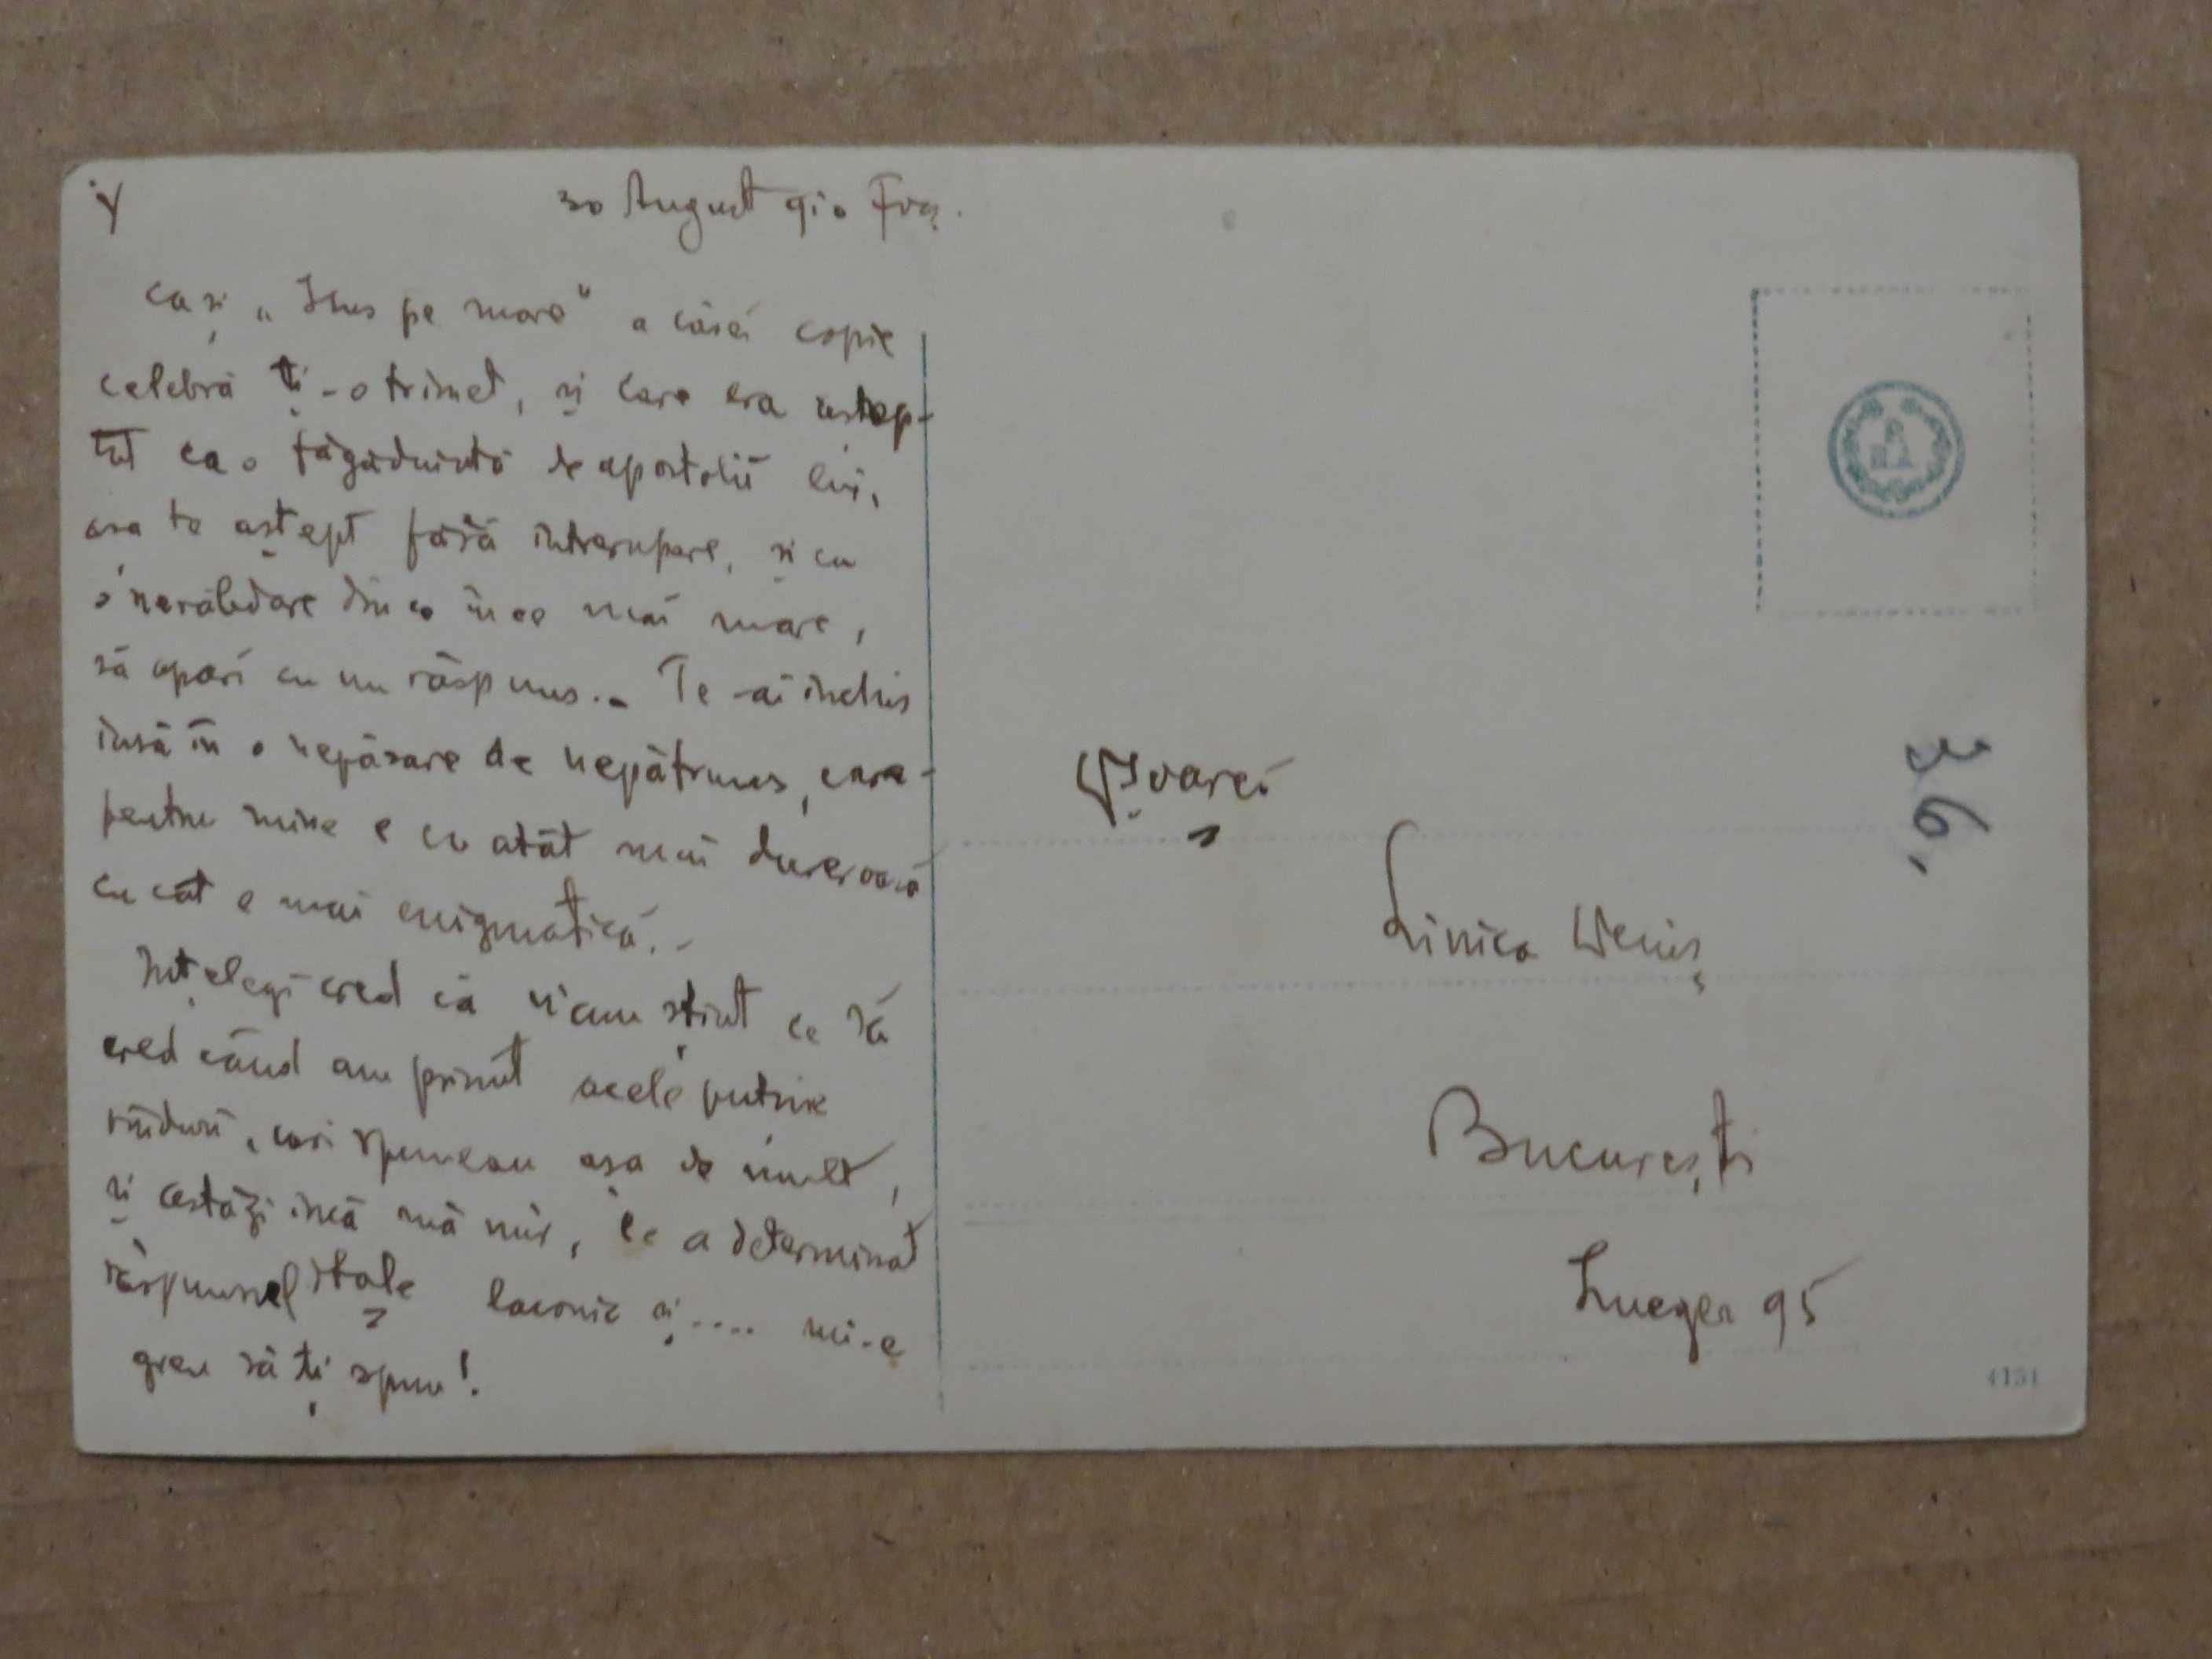 30 August 910
Ca și „Isus pe mare" a cărei copie
celebră ți-o trimet, și care era aștep-
tat ca o făgăduință de apostolii lui,
așa te aștept fără intrerupere, și cu
o nerăbdare din ce în ce mai mare,
să apari cu un răspuns.- Te-ai inchis
insă în o nepăsare de nepătruns, care
pentru mine e cu atât mai dureroasă
cu cât e mai enigmatică.-
Ințelegi cred că n'am știut ce să
cred când am primit acele puține
rînduri, cari spuneau așa de mult,
și astăzi incă mă mir, ce a determinat
răspunsul tale laconic și.... mi-e
greu să ți spun!.
Linica
București
95
36,
4151